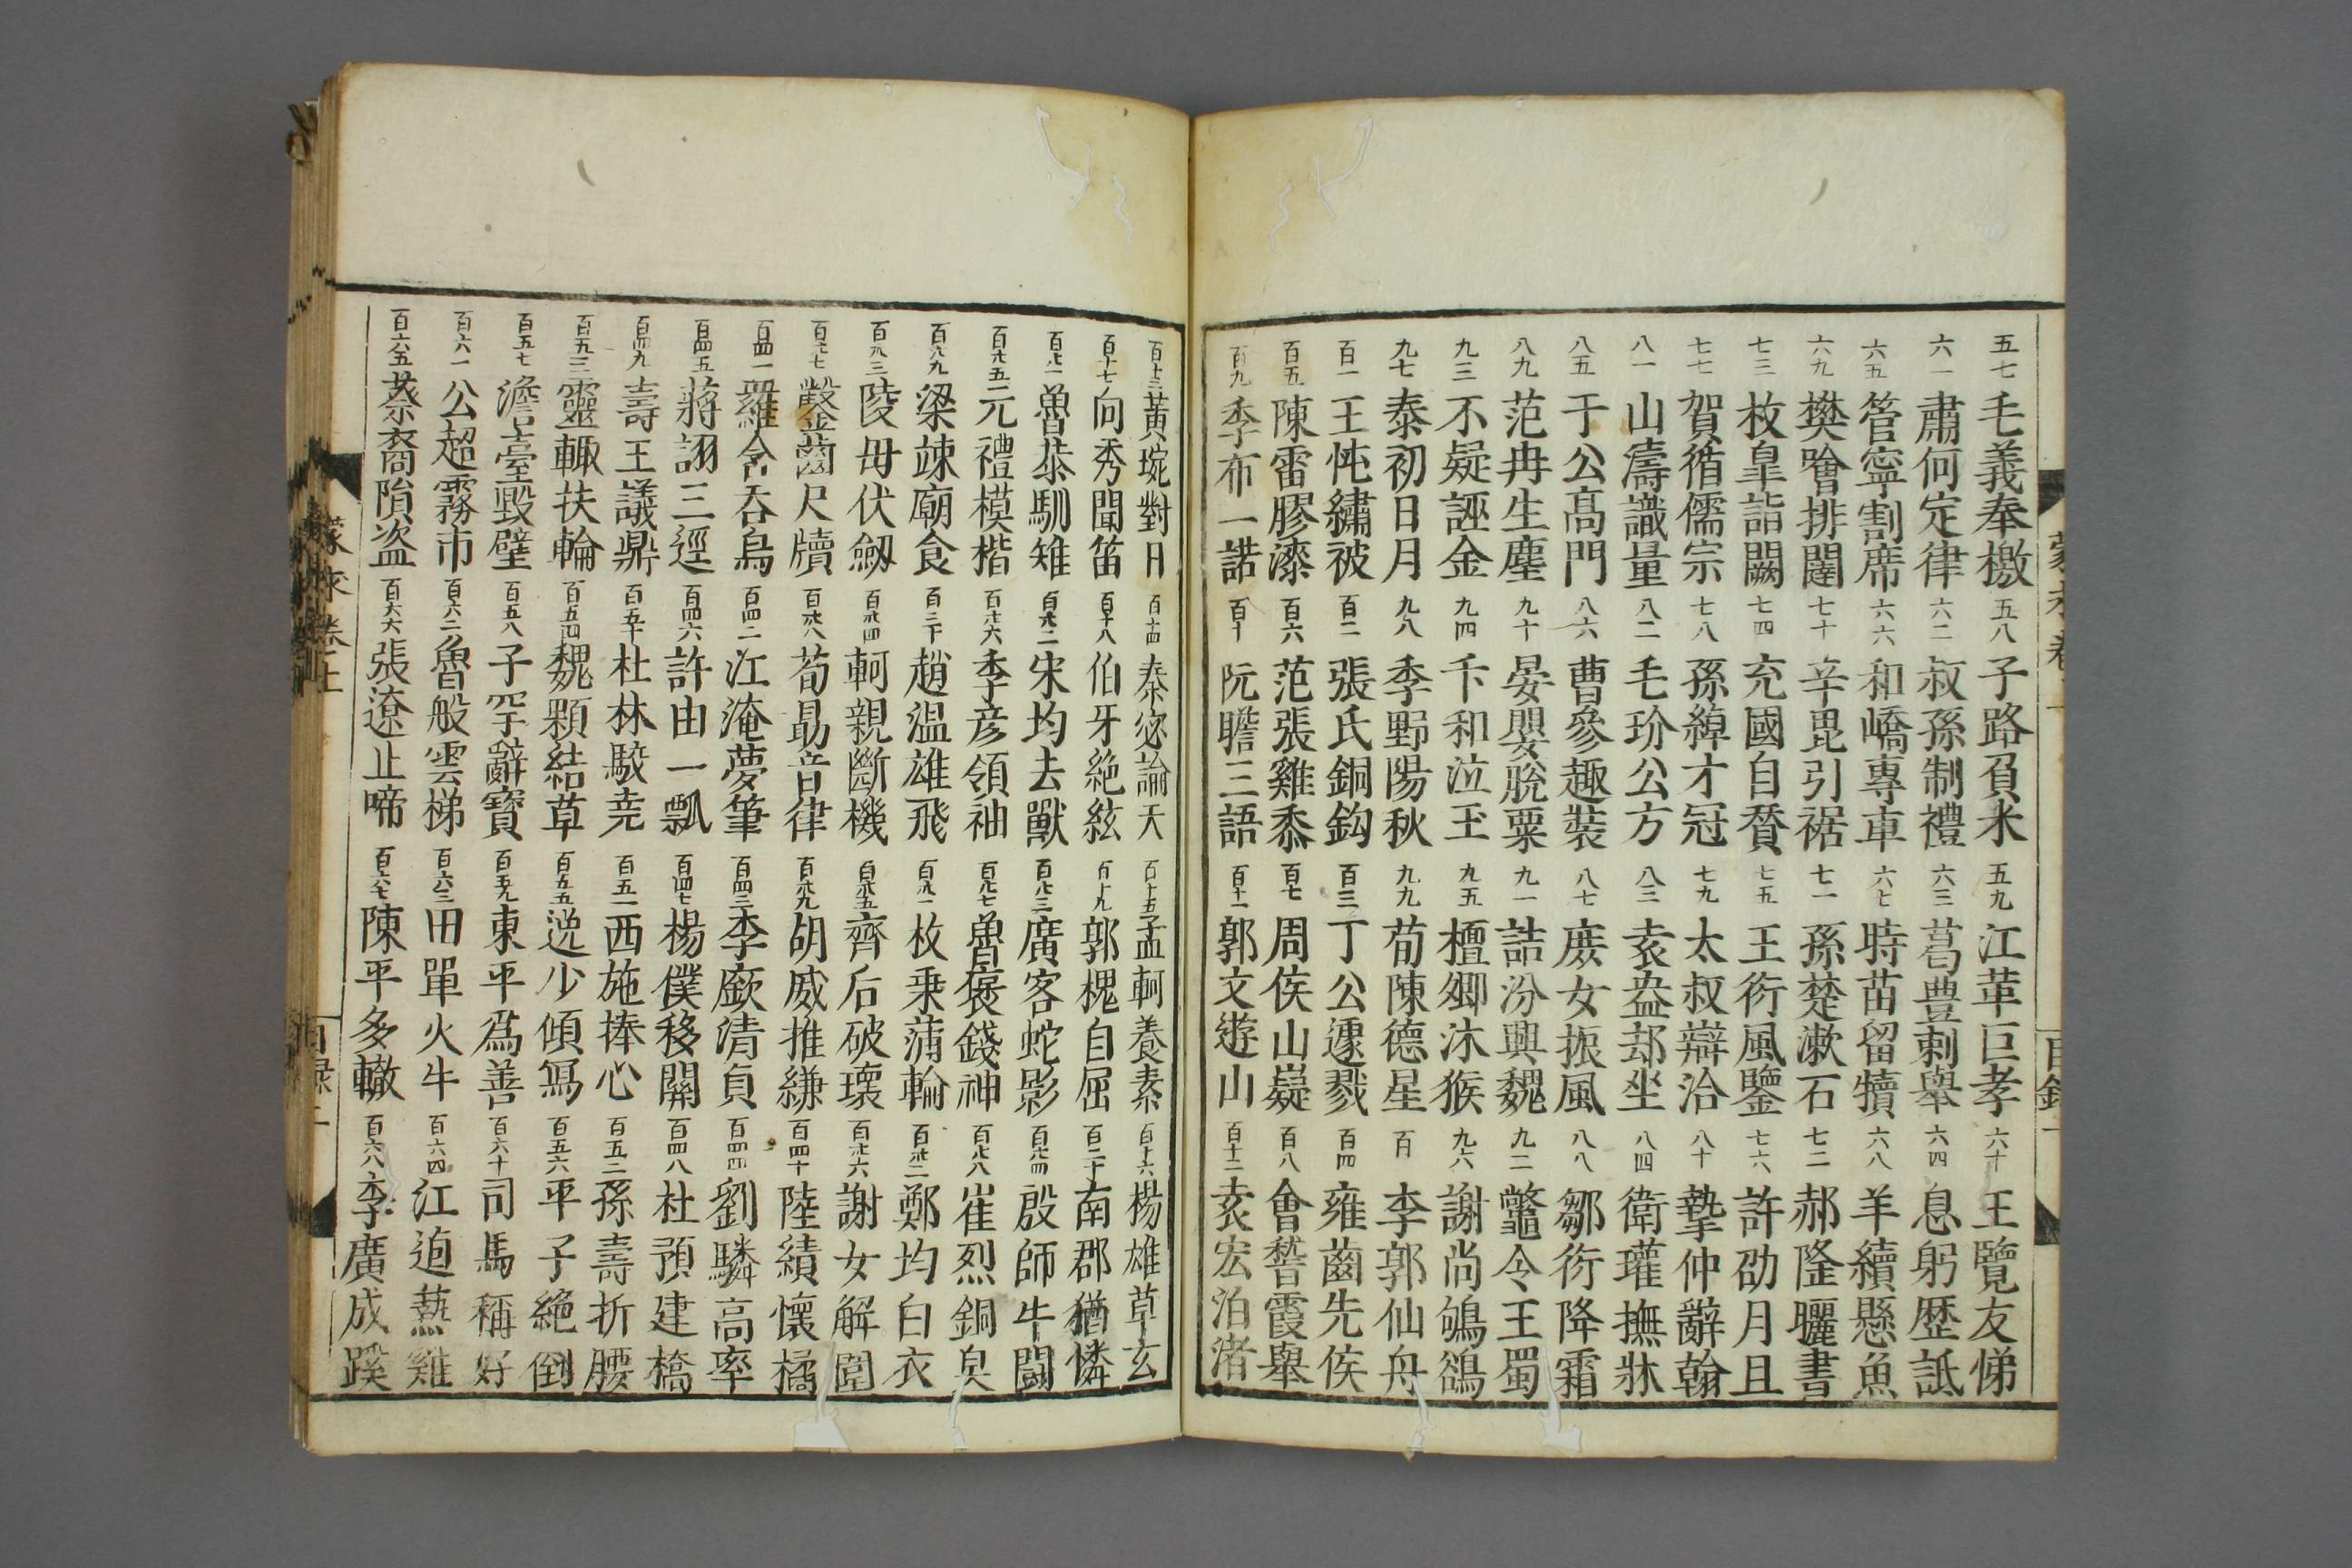 五七毛義奉檄 五八子路負米 五九江革巨孝 六十王覽友悌
六一肅何定律 六二叔孫制禮 六三葛豊刺舉 六四息躬歴詆
六五管寧割席 六六和嶠專車 六七時苗留犢 六八羊續懸魚
六九樊噲排闥 七十辛毘引裾 七一孫楚漱石 七二郝隆曬書
七三枚皐詣闕 七四充國自賛 七五王衍風鑒 七六許劭月旦
七七賀循儒宗 七八孫綽才冠 七九太叔辯洽 八十摯仲辭翰
八一山濤識量 八二毛玠公方 八三袁盎却坐 八四衛瓘撫牀
八五于公髙門 八六曹參趣裝 八七庻女振風 八八鄒衍降霜
八九范冉生塵 九十晏嬰脫粟 九一詰汾興魏 九二鼈令王蜀
九三不疑誣金 九四卞和泣玉 九五檀卿沐猴 九六謝尚鴝鵒
九七泰初日月 九八季野陽秋 九九荀陳德星 百李郭仙舟
百一王忳繡被 百二張氏銅鈎 百三丁公遽戮 百四雍齒先侯
百五陳雷膠漆 百六范張雞黍 百七周侯山嶷 百八會稽霞舉
百九季布一諾 百十阮瞻三語 百十一郭文遊山 百十二袁宏泊渚
百十三黄琬對日 百十四秦宓論天 百十五孟軻養素 百十六楊雄草玄
百十七向秀聞笛 百十八伯牙絶絃 百十九郭槐自屈 百二十南郡猶憐
百廿一魯恭馴雉 百廿二宋均去獸 百廿三廣客蛇影 百廿四殷師牛鬭
百廿五元禮模楷 百廿六季彦領袖 百廿七魯襃錢神 百廿八崔烈銅臭
百廿九梁竦廟食 百三十趙温雄飛 百卅一枚乗蒲輪 百卅二鄭均白衣
百卅三陵母伏劒 百卅四軻親斷機 百卅五齊后破環 百卅六謝女解圍
百卅七鑿齒尺牘 百卅八荀勗音律 百卅九胡威推縑 百四十陸績懷橘
百四一羅含吞鳥 百四二江淹夢筆 百四三李廞清貞 百四四劉驎高率
百四五蔣詡三逕 百四六許由一瓢 百四七楊僕移關 百四八杜預建橋
百四九壽王議鼎 百五十杜林駮尭 百五一西施捧心 百五二孫壽折腰
百五三靈輒扶輪 百五四魏顆結草 百五五逸少傾寫 百五六平子絶倒
百五七澹臺毀璧 百五八子罕辭寶 百五九東平爲善 百六十司馬稱好
百六一公超霧市 百六二魯般雲梯 百六三田單火牛 百六四江逌爇雞
百六五蔡裔隕盗 百六六張遼止啼 百六七陳平多轍 百六八李廣成蹊
蒙求卷上 目録二